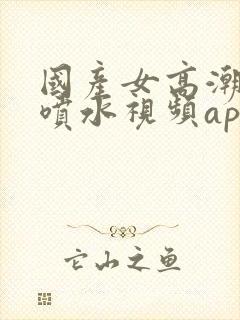 國產女高潮
噴水視頻ap
它山之鱼